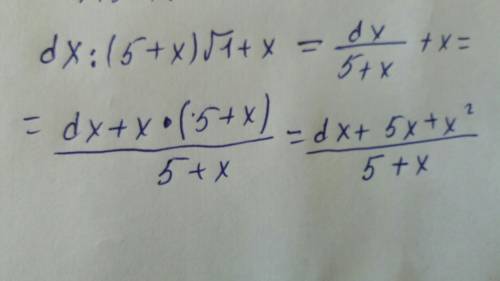 dx : (5+x)√1+x = dx/(5+x) + x =
= (dx+x•(5+x))/(5+x) = (dx+5x+x²)/(5+x)